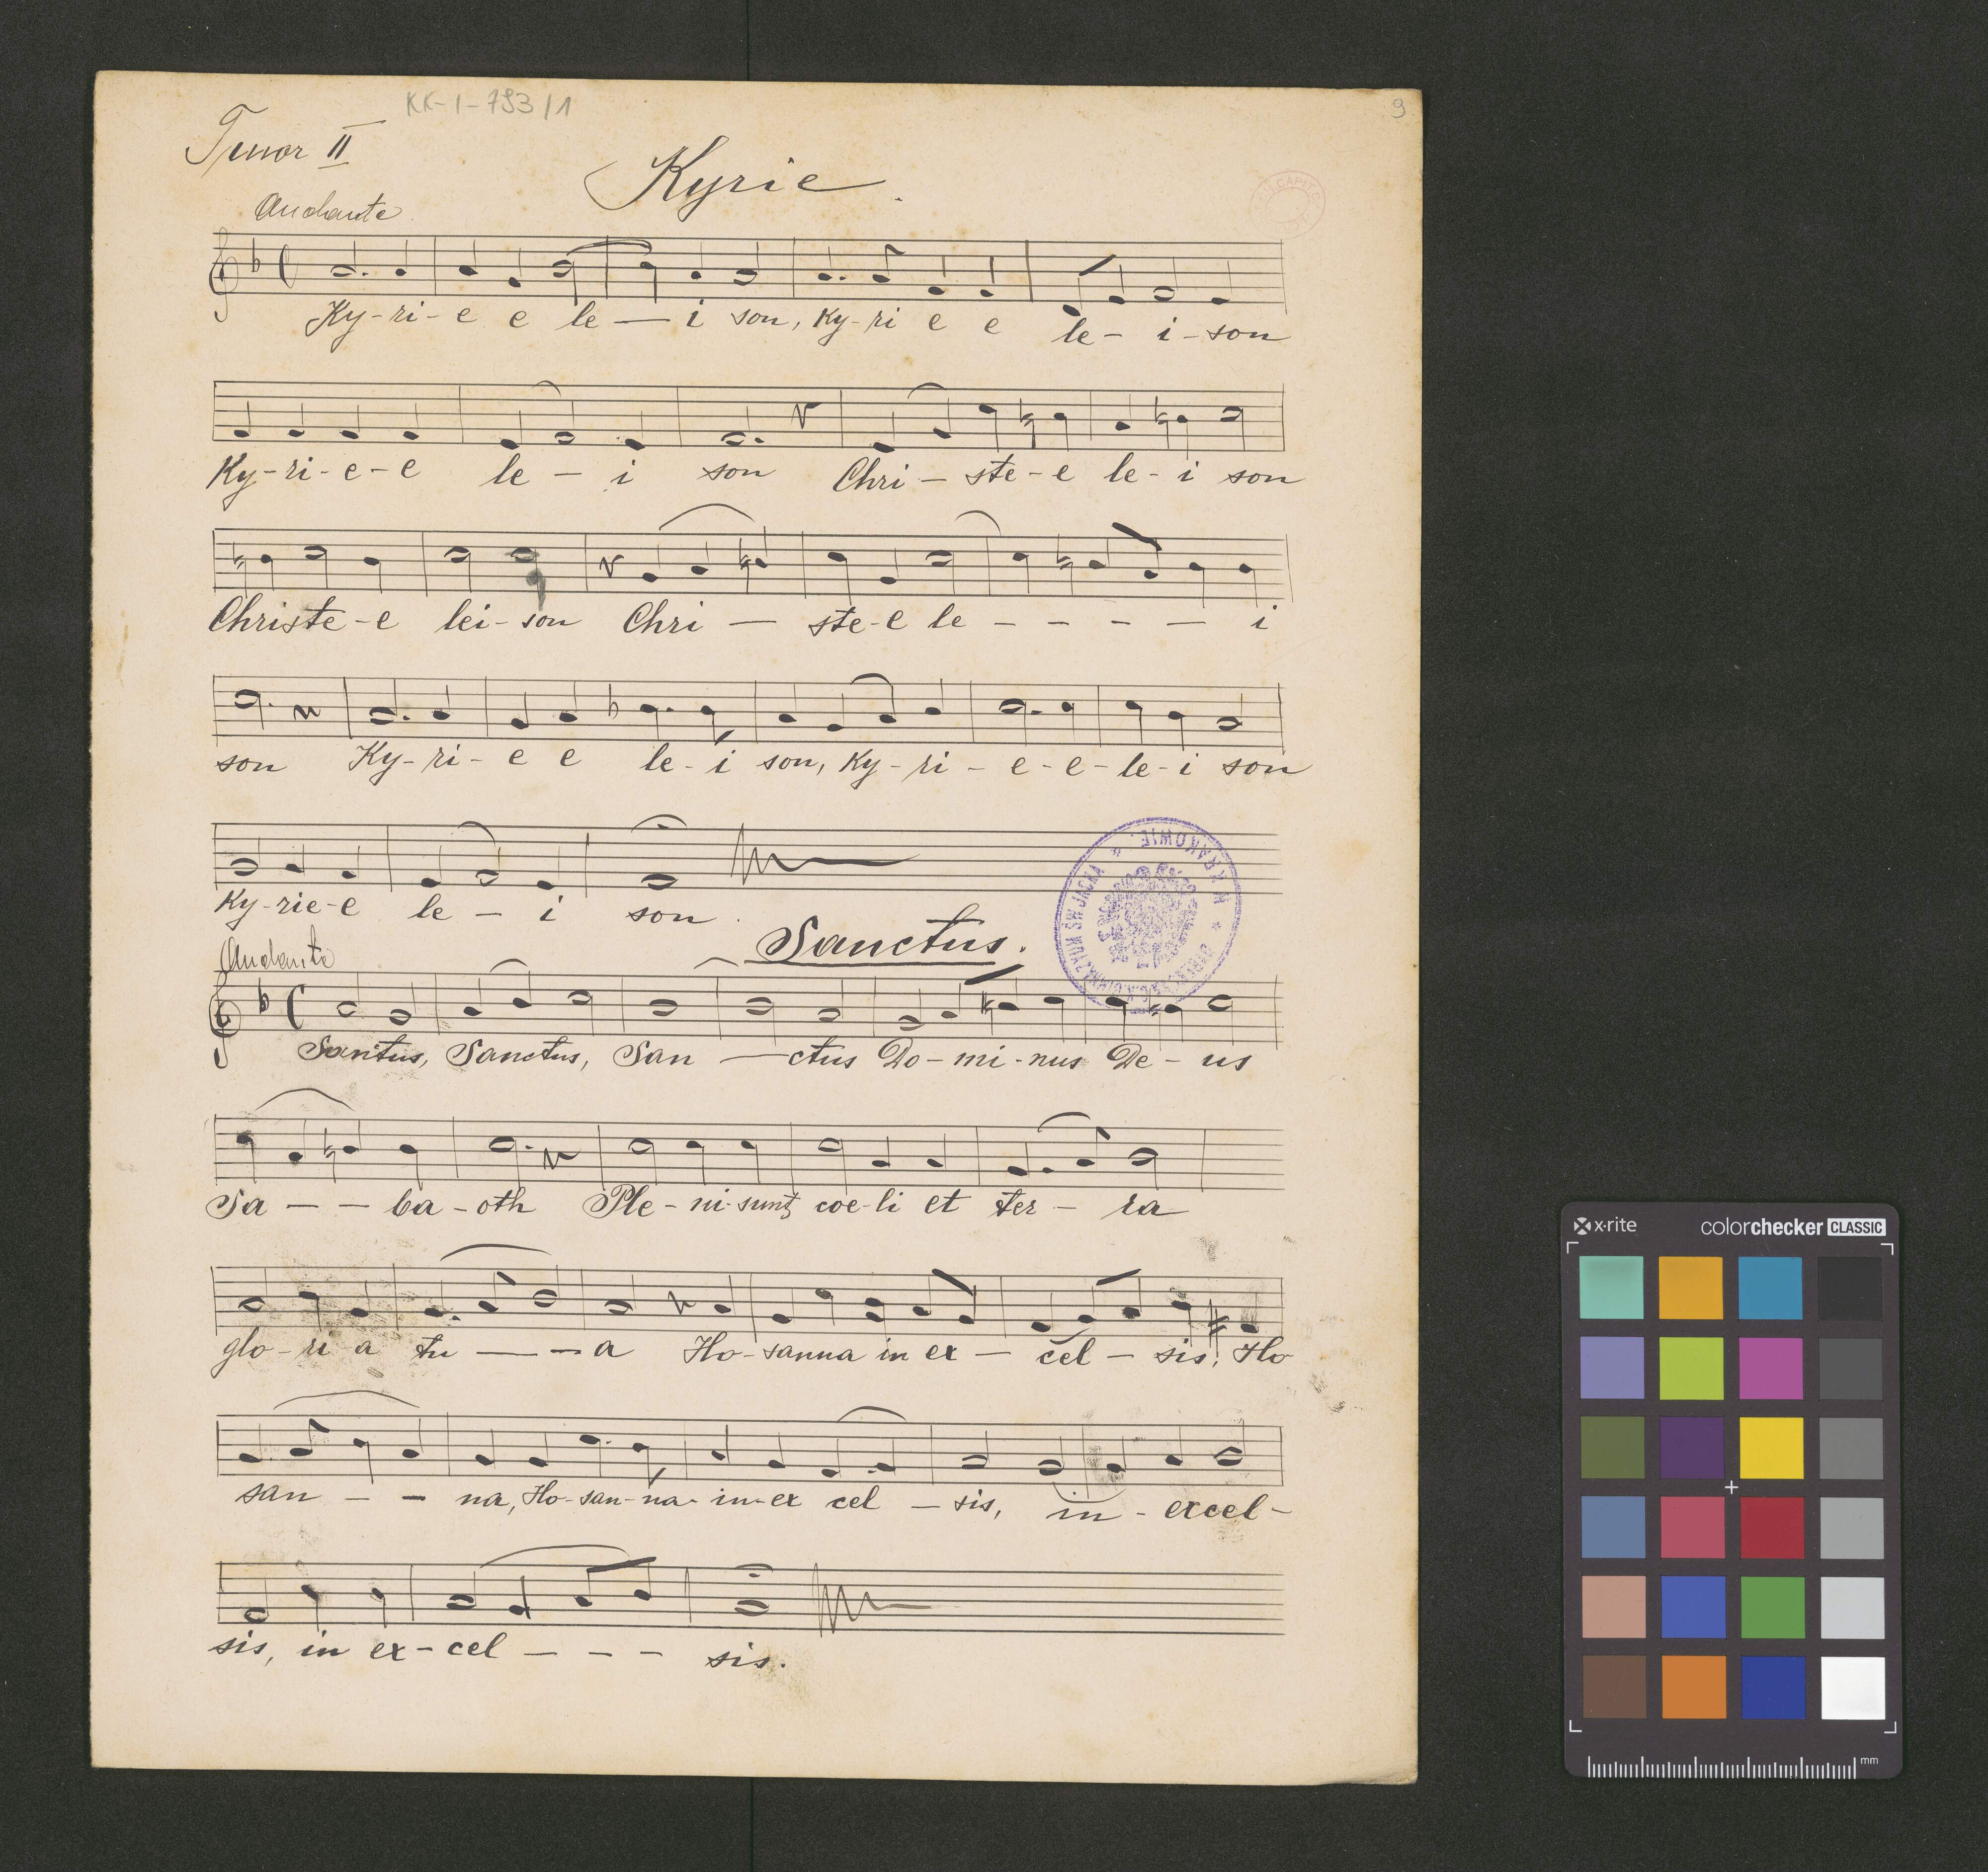 KK-I-793/1
9
Tenor II
Kyrie.
Andante
Ky-ri-e e le — i son, Ky-ri e e le- i-son
Ky-ri-e-e le - i son Chri - ste-e le-i son
Christe-e lei-son Chri — ste-e le - - - - i
son Ky-ri-e e le-i son, Ky-ri-e-e-le-i son
Ky-rie-e le - i son.
Sanctus.
Andante
Santus, Sanctus, San — ctus Do-mi-nus De-us
Sa - - ba-oth Ple-ni-sunt coe-li et ter-ra
glo-ri a tu — - a Ho-sanna in ex - cel - sis, Ho
san - - na, Ho-san-na-in-ex cel - sis, in - excel-
sis, in ex-cel - - - sis.
GIMNAZYUM ŚW JACKA * W KRAKOWIE. *
x·rite colorchecker CLASSIC
mm